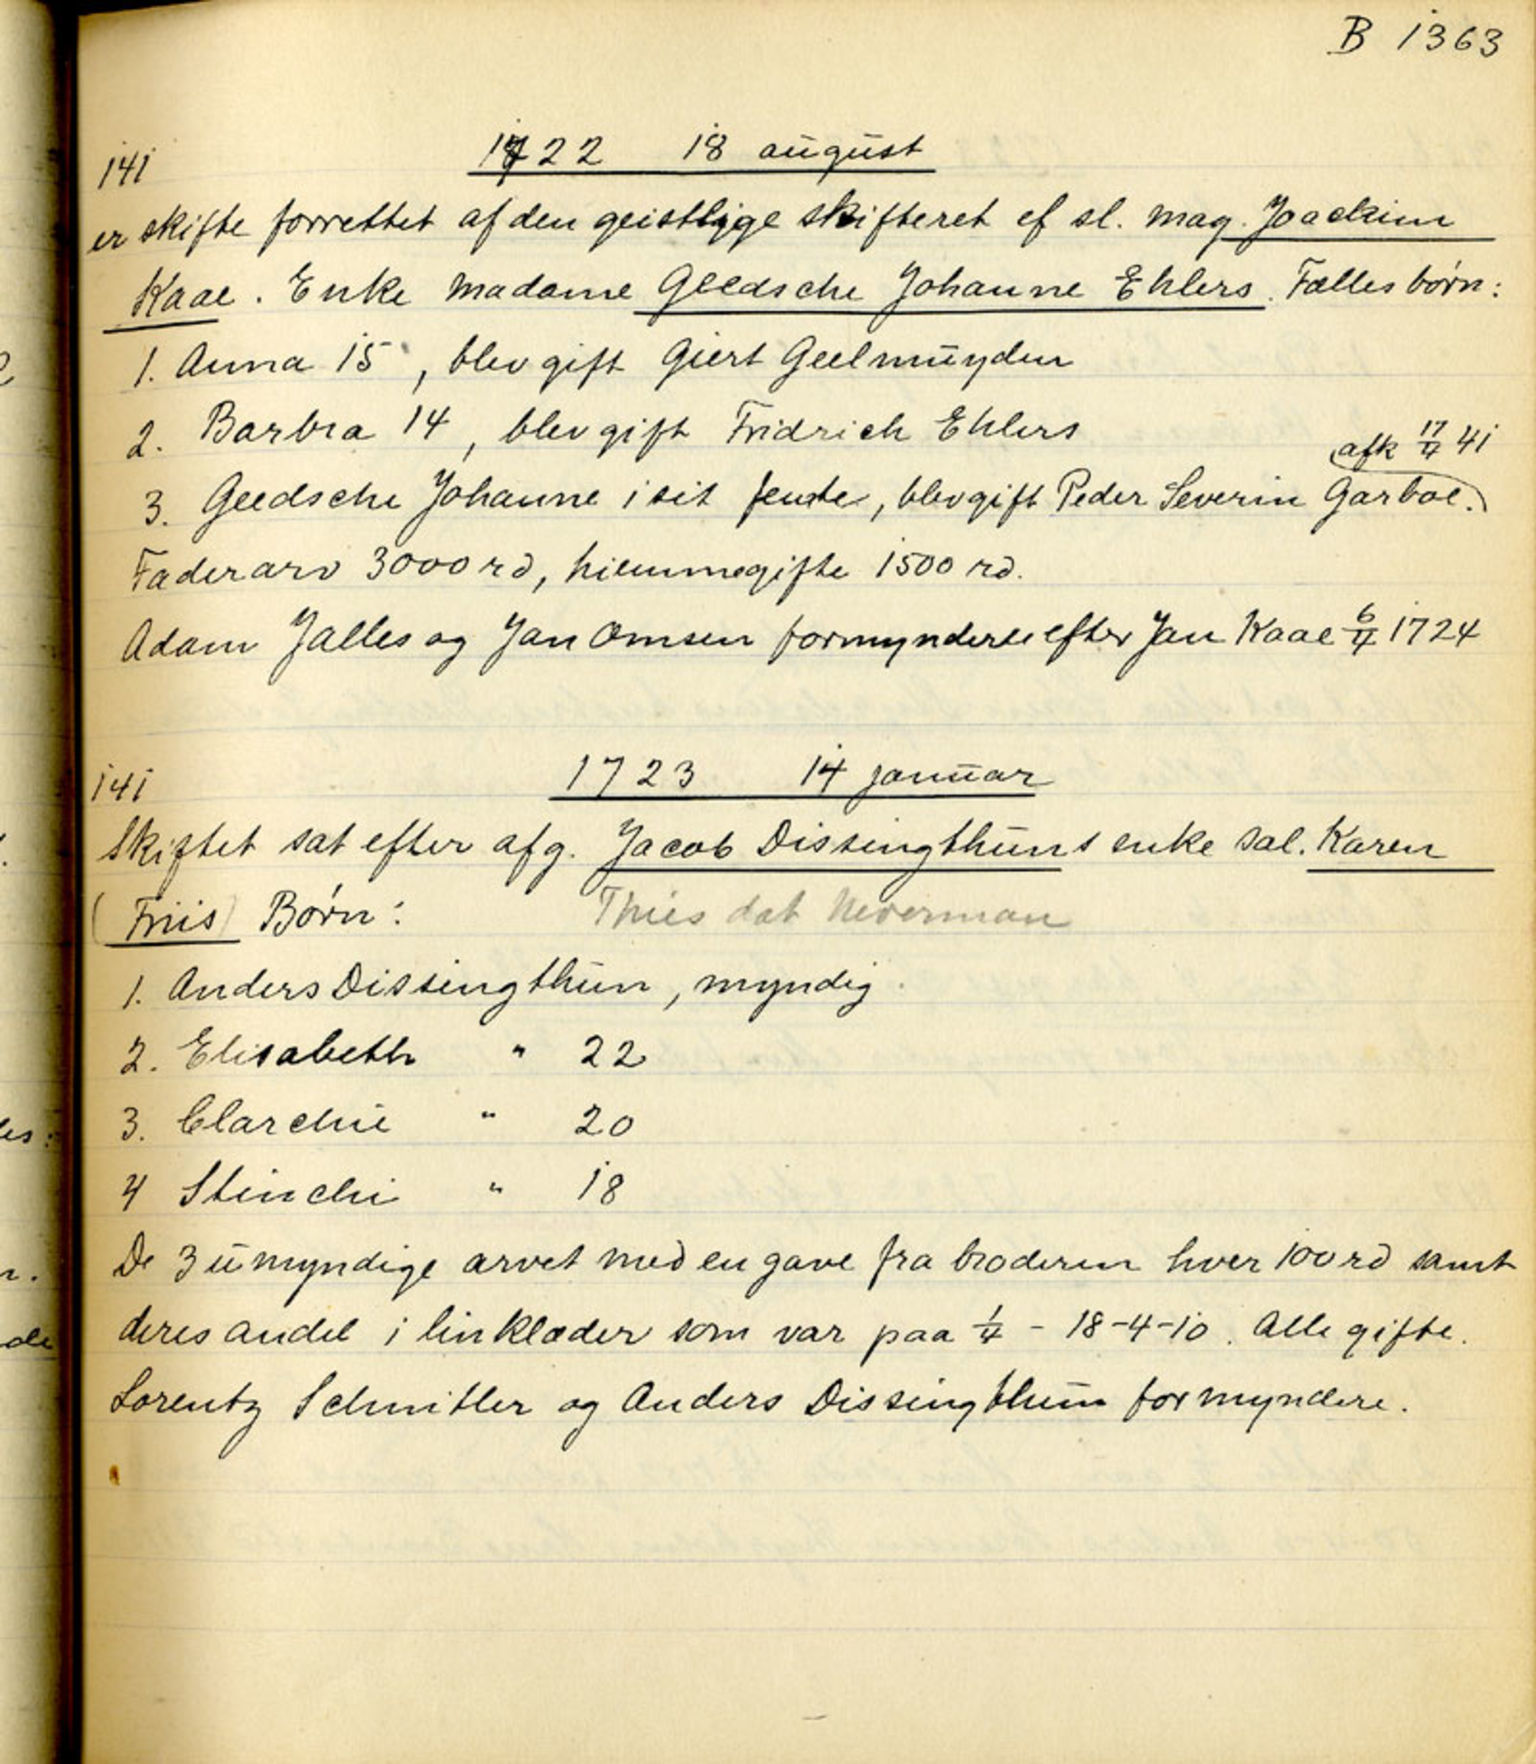 B 1363
141 1722 18 august
er skifte forrettet af den geistlige skifteret ef sl. mag. Joachim
Kaae. Enke Madame Geedsche Johanne Ehlers. Fælles børn:
1. Anna 15, blev gift Giert Geelmuyden
2. Barbra 14, blev gift Fridrich Ehlers
afk 17/4 41
3. Geedsche Johanne i sit femte, blev gift Peder Severin Garboe.
Faderarv 3000 rd, hiemmegifte 1500 rd.
Adam Jalles og Jan Omsen formyndere efter Jan Kaae 6/4 1724
141 1723 14 januar
Skiftet sat efter afg. Jacob Dissingthuns enke sal. Karen
(Friis) Børn: Thies dat Neverman
1. Anders Dissingthun, myndig
2. Elisabeth " 22
3. Clarchie " 20
4 Stinchi " 18
De 3 umyndige arvet med en gave fra broderen hver 100 rd samt
deres andel i linklæder som var paa 1/4 - 18-4-10. Alle gifte.
Lorentz Schmitler og Anders Dissingthun formyndere.